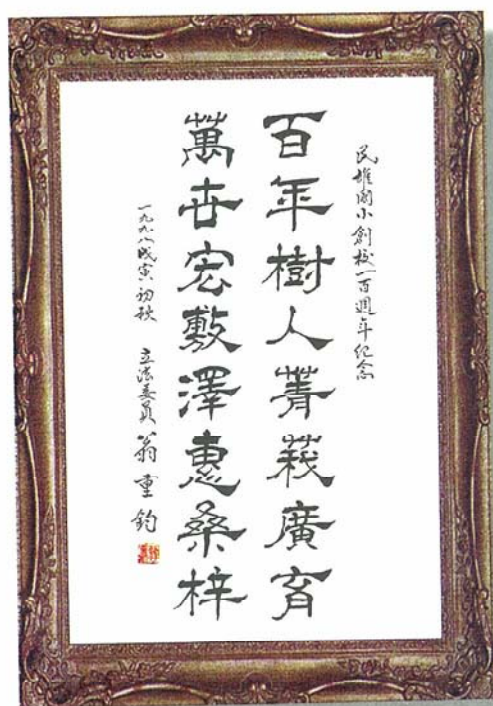 民雄國小創校一百週年纪念
百年樹人菁莪廣育
萬世宏敷澤惠桑梓
一九九八戊寅初秋 立法委員 翁重鈞